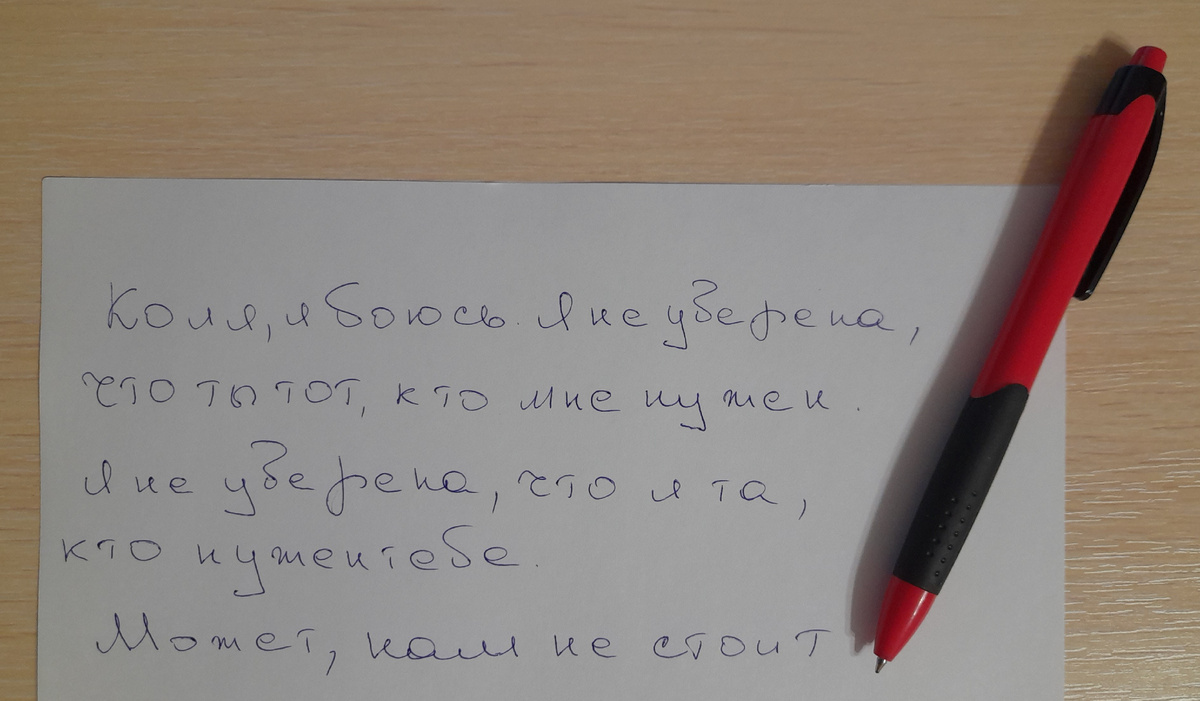 Коля, я боюсь. Я не уверена,
что ты тот, кто мне нужен.
Я не уверена, что я та,
кто нужен тебе.
Может, нам не стоит